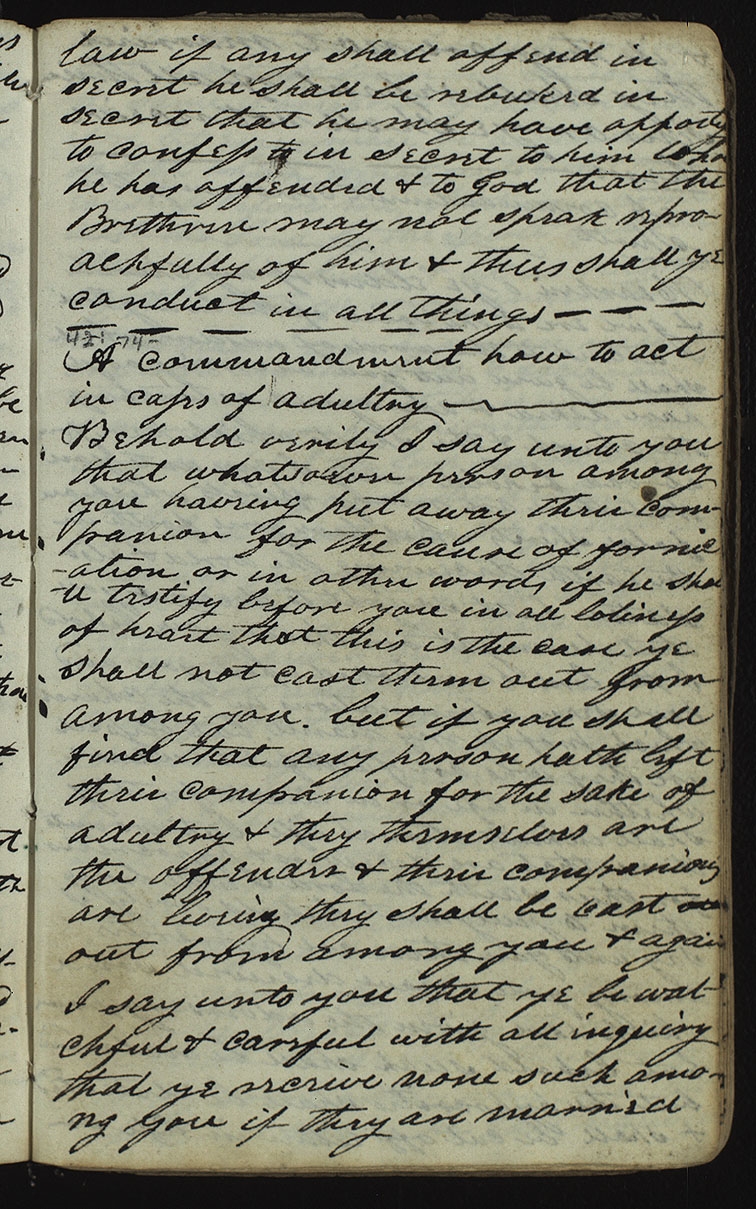 law if any shall offend in
secret he shall be rebuked in
secret that he may have opporty
to confess to in secret to him who
he has offended & to God that the
Brethren may not speak repro-
achfully of him & thus shall ye
conduct in all things — — —
42: 74-
A commandment how to act
in cases of adultry
Behold verily I say unto you
that whatsoever person among
you having put away their com-
panion for the cause of fornic
-ation or in other words if he sha
ll testify before you in all loliness
of heart that this is the case ye
shall not cast them out from
among you. but if you shall
find that any person hath left
their companion for the sake of
adultry & they themselves are
the offender & their companions
are living they shall be cast
out from among you & again
I say unto you that ye be wat-
chful & careful with all inquiry
that ye receive none such amo-
ng you if they are married